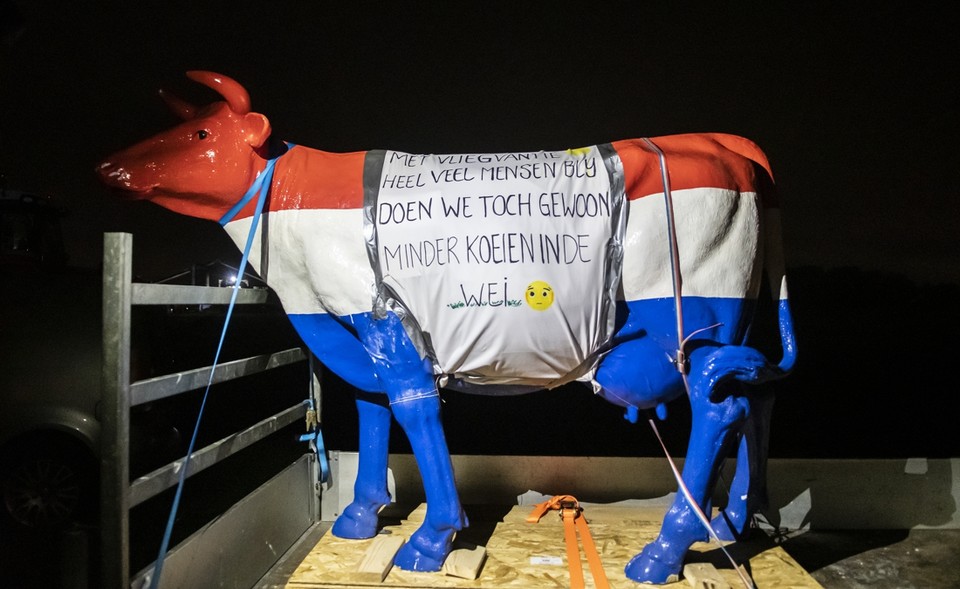 MET VLIEGVANTIE
HEEL VEEL MENSEN BLY
DOEN WE TOCH GEWOON
MINDER KOEIEN IN DE
WEI